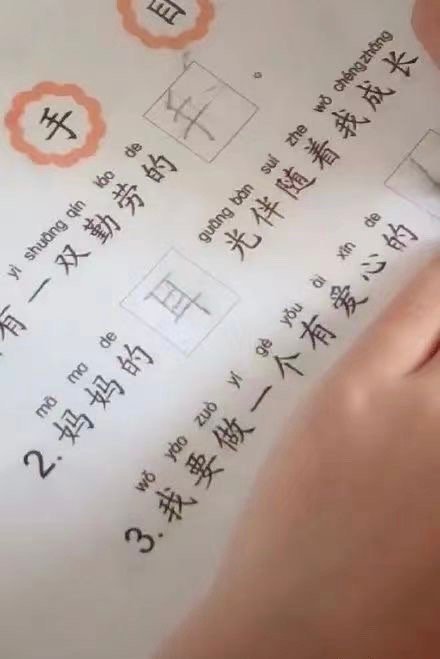 手 目
yì shuāng qín láo de
有一双勤劳的
mā ma de guāng bàn suí zhe wǒ chéngzhǎng
2. 妈妈的 耳 光伴随着我成长
wǒ yào zuò yí gè yǒu ài xīn de
3. 我要做一个有爱心的